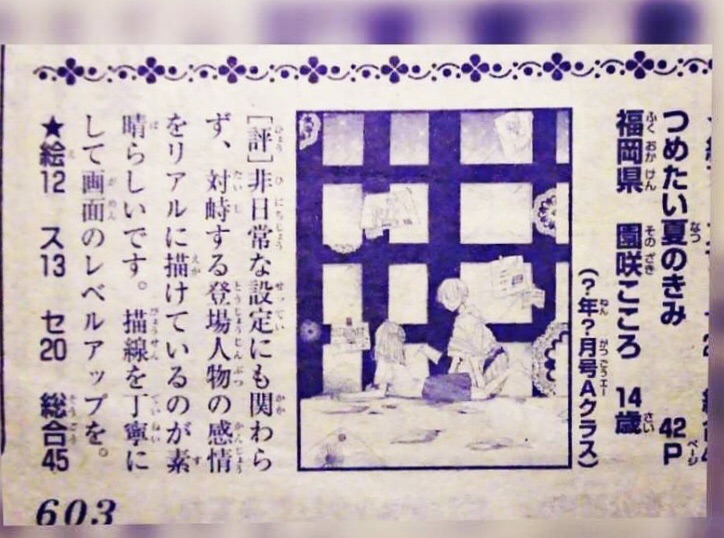 つめたい夏のきみ 42P
福岡県 園咲こころ 14歳
(?年?月号Aクラス)
[評]非日常な設定にも関わら
ず、対峙する登場人物の感情
をリアルに描けているのが素
晴らしいです。描線を丁寧に
して画面のレベルアップを。
★絵12 ス13 セ20 総合45
603